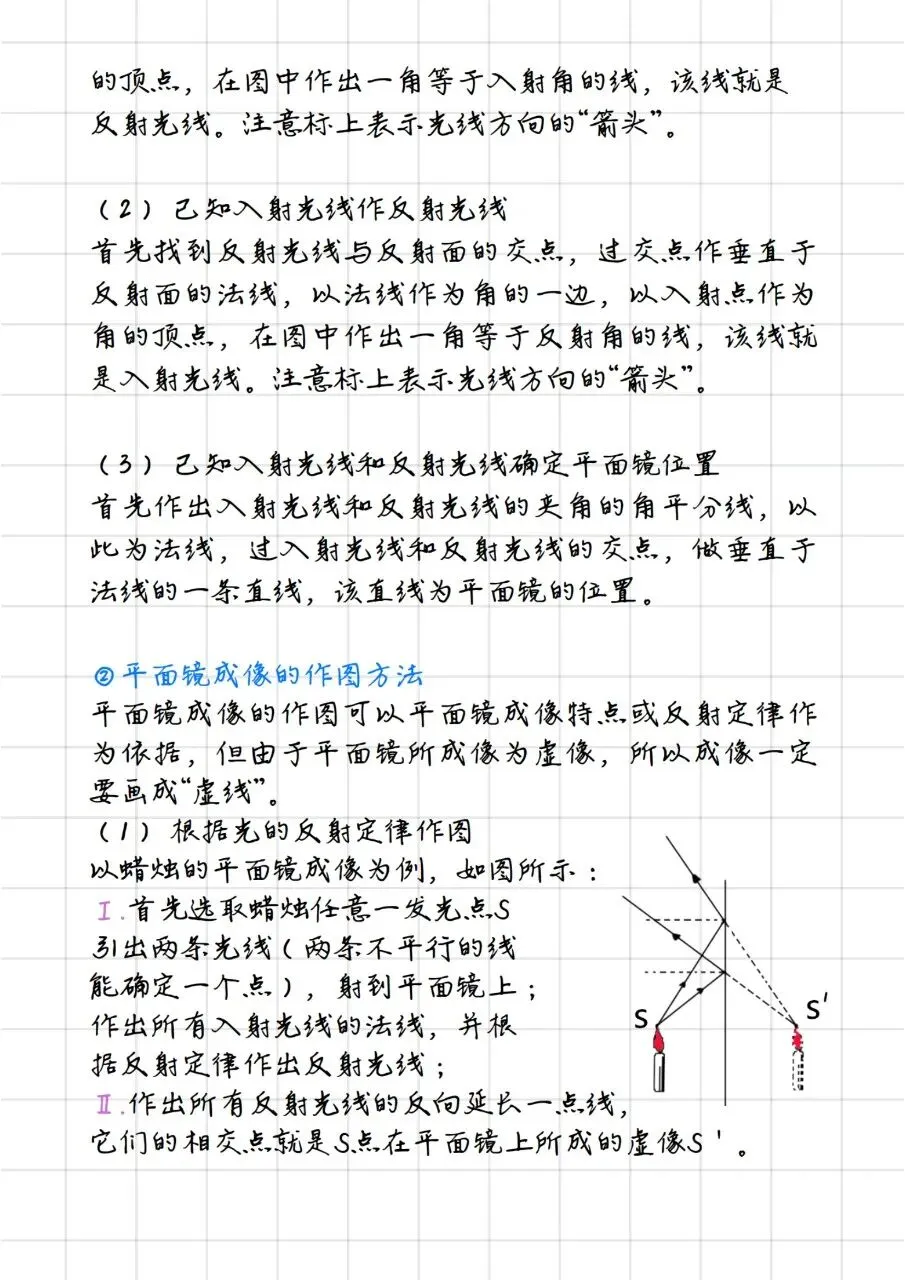 的顶点，在图中作出一角等于入射角的线，该线就是
反射光线。注意标上表示光线方向的“箭头”。
（2）已知入射光线作反射光线
首先找到反射光线与反射面的交点，过交点作垂直于
反射面的法线，以法线作为角的一边，以入射点作为
角的顶点，在图中作出一角等于反射角的线，该线就
是入射光线。注意标上表示光线方向的“箭头”。
（3）已知入射光线和反射光线确定平面镜位置
首先作出入射光线和反射光线的夹角的角平分线，以
此为法线，过入射光线和反射光线的交点，做垂直于
法线的一条直线，该直线为平面镜的位置。
②平面镜成像的作图方法
平面镜成像的作图可以平面镜成像特点或反射定律作
为依据，但由于平面镜所成像为虚像，所以成像一定
要画成“虚线”。
（1）根据光的反射定律作图
以蜡烛的平面镜成像为例，如图所示：
Ⅰ.首先选取蜡烛任意一发光点S
引出两条光线（两条不平行的线
能确定一个点），射到平面镜上；
作出所有入射光线的法线，并根
据反射定律作出反射光线；
Ⅱ.作出所有反射光线的反向延长一点线，
它们的相交点就是S点在平面镜上所成的虚像S'。
S
S'